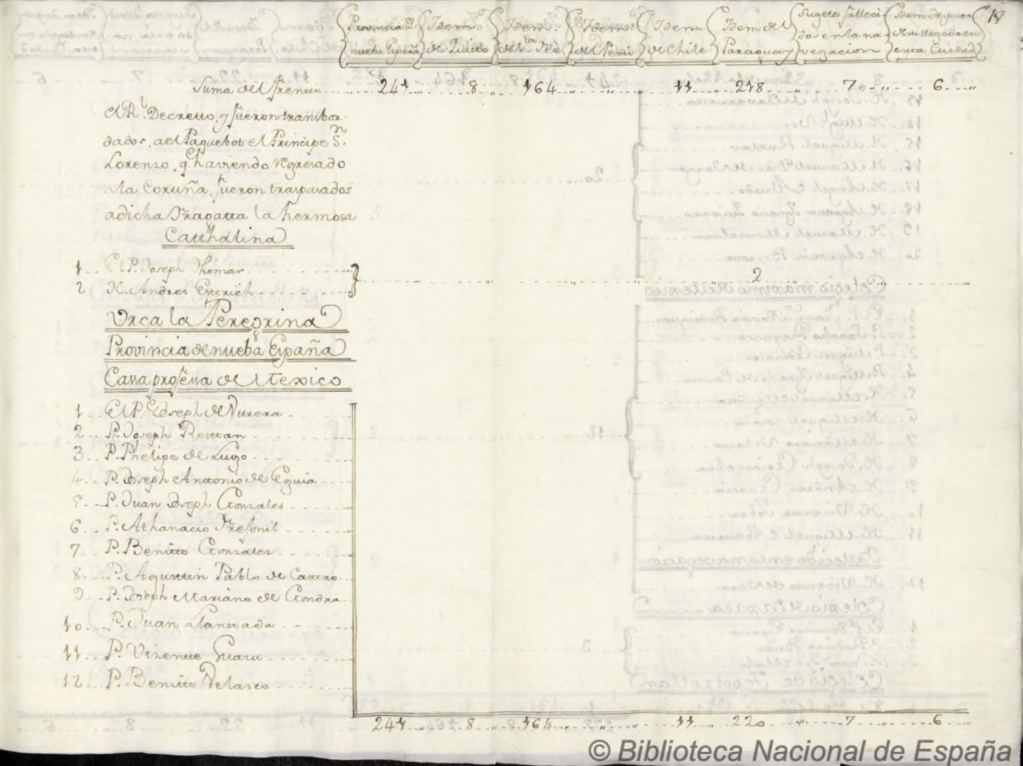 Provincia de nueba España Idem de Quito Idem de Sta. Fée Idem del Perú Idem de Chile Idem del Paraguay Sugetos fallecidos en la navegacion Idem despues de su llegada en esta Ciudad 18
Suma del frente 241 8 164 " 11 218 7 6
el Rl. Decreto, y fueron transbor-
dados, ael Paquebot el Principe Sn.
Lorenzo, q haviendo regresado
a la Coruña, fueron traspasados
a dicha Fragatta la hermosa
Catthalina
1 El P. Joseph Thomas
2 H. Andres 2
Urca la Peregrina
Provincia de nueba España
Cassa professa de Mexico
1 El P. Joseph de Utrera
2 P. Joseph
3 P. Phelipe de Lugo
4 P. Joseph Antonio de Eguia
5 P. Juan Joseph Gonzales
6 P. Athanacio
7 P. Benitto Gonzales
8 P. Agusttin Pablo de Castro
9 P. Joseph Mariano de Gondra
10 P. Juan
11 P. Vizente
12 P. Benitto Velasco
241 8 164 " 11 220 " 7 6
© Biblioteca Nacional de España